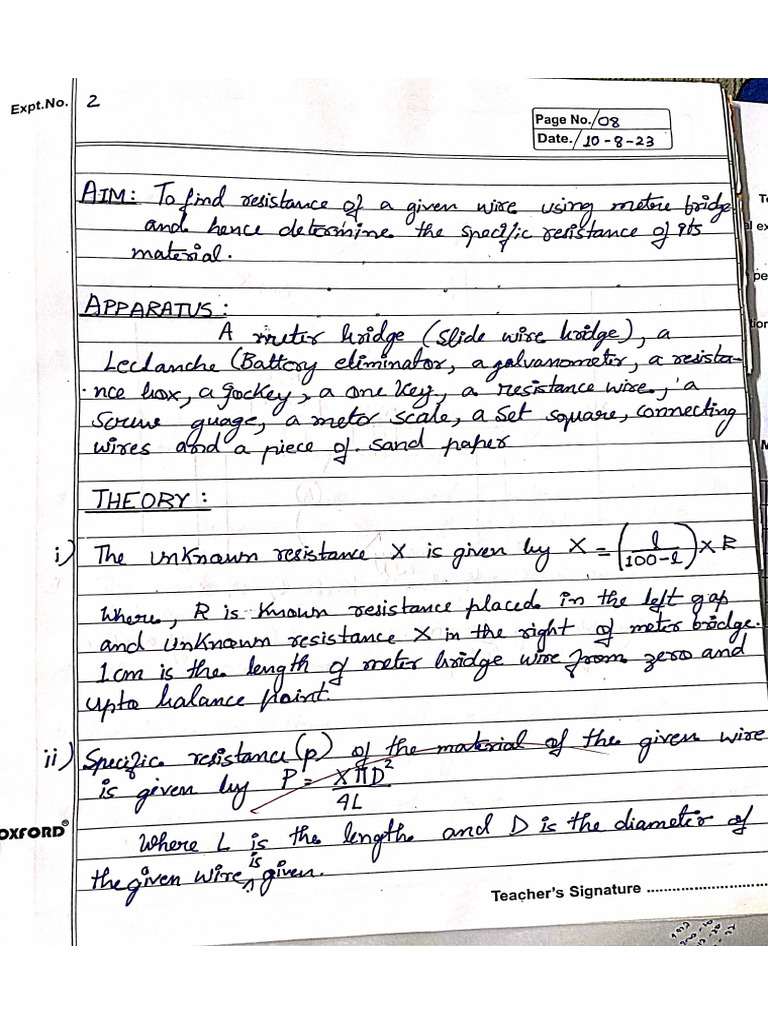 Expt.No. 2
Page No. 08
Date. 10-8-23
AIM: To find resistance of a given wire using metre bridge
and hence determine the specific resistance of its
material.
APPARATUS:
A meter bridge (slide wire bridge), a
Leclanche (Battery eliminator, a galvanometer, a resista-
nce box, a Jockey, a one key, a resistance wire, a
screw guage, a meter scale, a set square, connecting
wires and a piece of sand paper
THEORY:
i) The unknown resistance X is given by X = (l/100-l) X R
Where, R is known resistance placed in the left gap
and unknown resistance X in the right of meter bridge.
1cm is the length of meter bridge wire from zero and
upto balance point.
ii) Specific resistance (p) of the material of the given wire
is given by P = XπD²/4L
OXFORD®
Where L is the length and D is the diameter of
the given wire is given.
Teacher's Signature